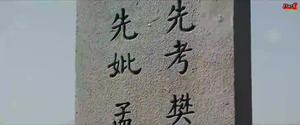 先考樊
先妣孟